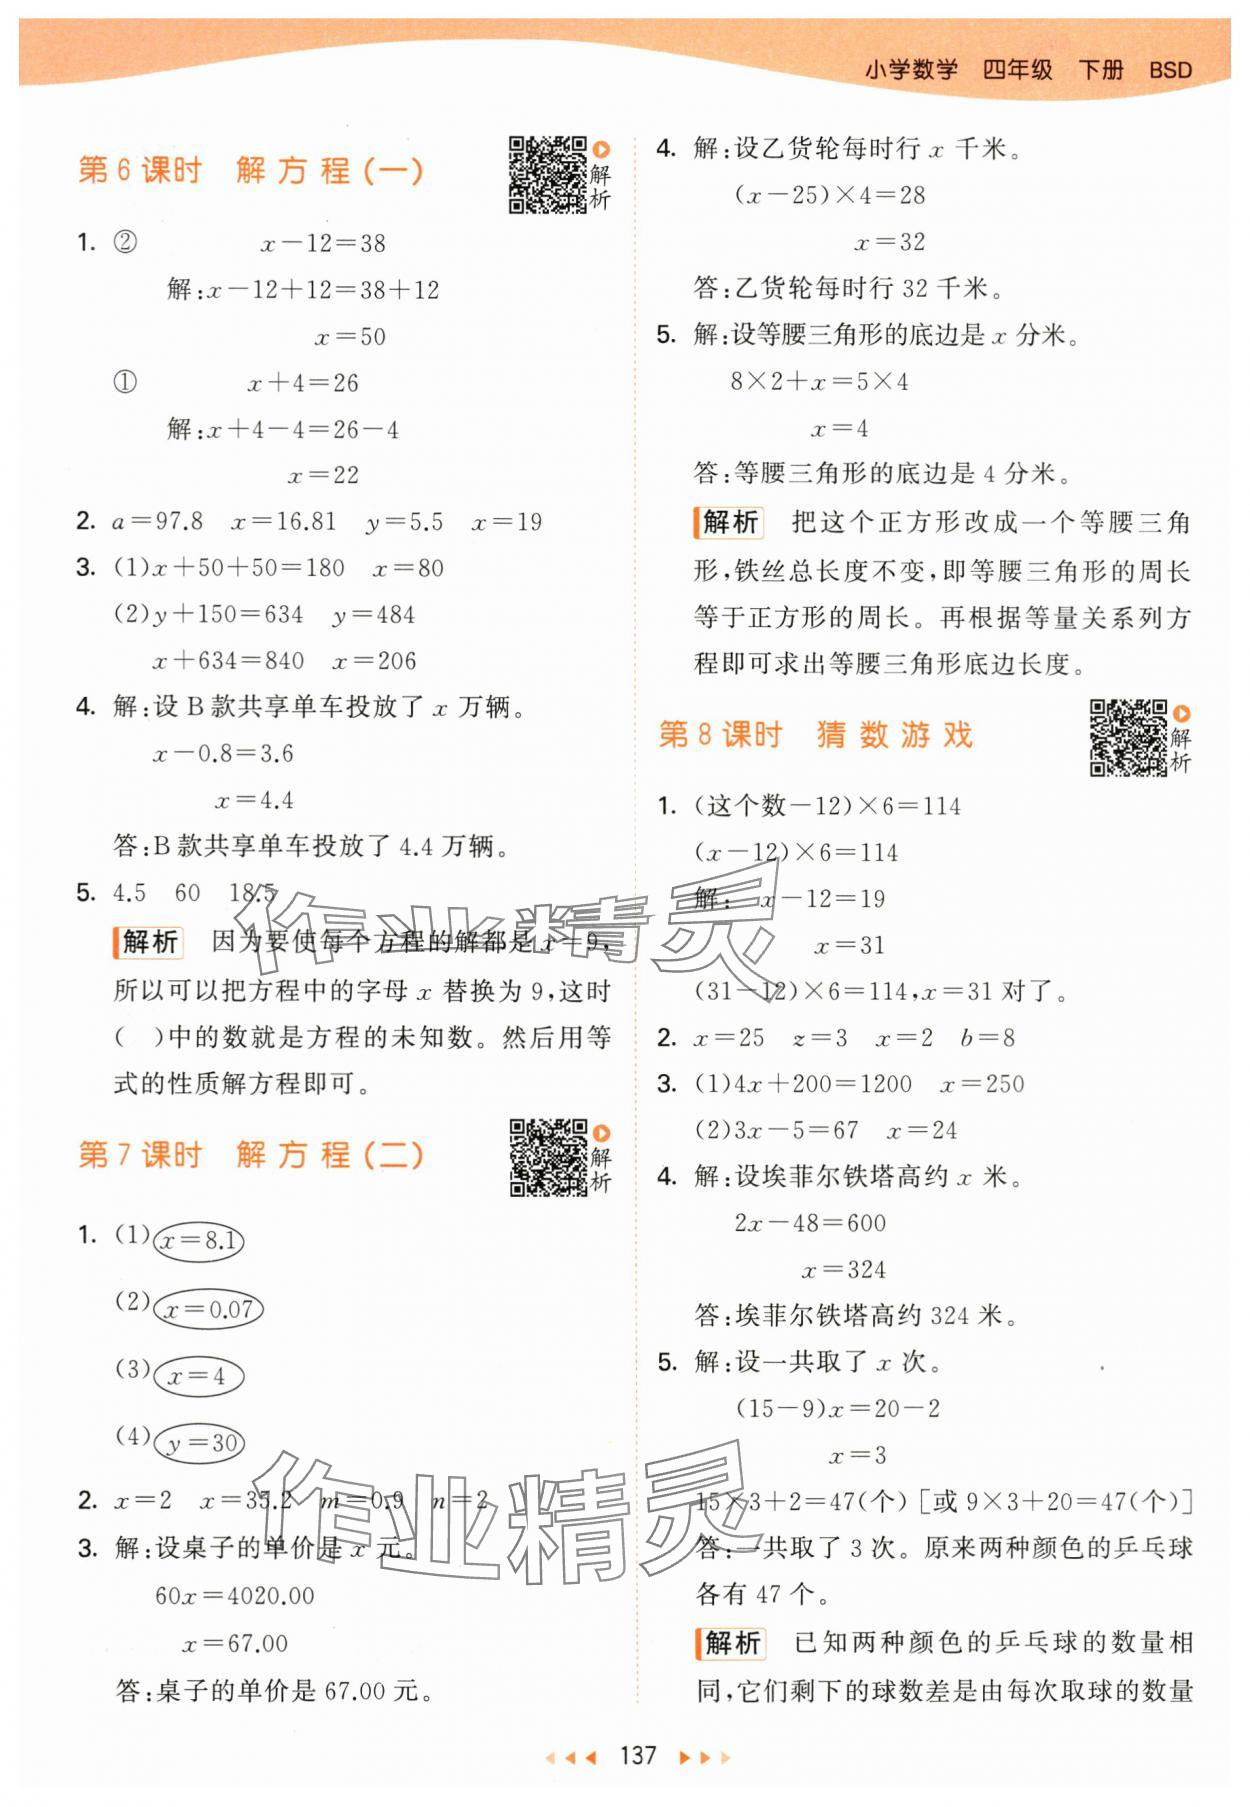 小学数学 四年级 下册 BSD
第6课时 解方程(一)
解析
1. ② x－12＝38
解:x－12＋12＝38＋12
x＝50
① x＋4＝26
解:x＋4－4＝26－4
x＝22
2. a＝97.8 x＝16.81 y＝5.5 x＝19
3. (1)x＋50＋50＝180 x＝80
(2)y＋150＝634 y＝484
x＋634＝840 x＝206
4. 解:设B款共享单车投放了 x 万辆。
x－0.8＝3.6
x＝4.4
答:B款共享单车投放了 4.4 万辆。
5. 4.5 60 18.5
解析 因为要使每个方程的解都是 x＝9,
所以可以把方程中的字母 x 替换为 9,这时
( )中的数就是方程的未知数。然后用等
式的性质解方程即可。
第7课时 解方程(二)
解析
1. (1)x＝8.1
(2)x＝0.07
(3)x＝4
(4)y＝30
2. x＝2 x＝35.2 m＝0.9 n＝2
3. 解:设桌子的单价是 x 元。
60x＝4020.00
x＝67.00
答:桌子的单价是 67.00 元。
4. 解:设乙货轮每时行 x 千米。
(x－25)×4＝28
x＝32
答:乙货轮每时行 32 千米。
5. 解:设等腰三角形的底边是 x 分米。
8×2＋x＝5×4
x＝4
答:等腰三角形的底边是 4 分米。
解析 把这个正方形改成一个等腰三角
形,铁丝总长度不变,即等腰三角形的周长
等于正方形的周长。再根据等量关系列方
程即可求出等腰三角形底边长度。
第8课时 猜数游戏
解析
1. (这个数－12)×6＝114
(x－12)×6＝114
解: x－12＝19
x＝31
(31－12)×6＝114,x＝31 对了。
2. x＝25 z＝3 x＝2 b＝8
3. (1)4x＋200＝1200 x＝250
(2)3x－5＝67 x＝24
4. 解:设埃菲尔铁塔高约 x 米。
2x－48＝600
x＝324
答:埃菲尔铁塔高约 324 米。
5. 解:设一共取了 x 次。
(15－9)x＝20－2
x＝3
15×3＋2＝47(个)[或 9×3＋20＝47(个)]
答:一共取了 3 次。原来两种颜色的乒乓球
各有 47 个。
解析 已知两种颜色的乒乓球的数量相
同,它们剩下的球数差是由每次取球的数量
作业精灵
作业精灵
137